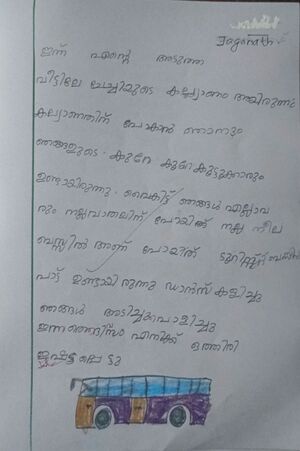 Jaganath
ഇന്ന് എന്റെ അടുത്ത
വീട്ടിലെ ചേച്ചിയുടെ കല്ല്യാണം ആയിരുന്നു
കല്യാണത്തിന് പോകാൻ ഞാനും
ഞങ്ങളുടെ കുറേ കൂട്ടുകാരും
ഉണ്ടായിരുന്നു. വൈകിട്ട് ഞങ്ങൾ എല്ലാവ
രും പോയിത് നല്ല നീല
ബസ്സിൽ ആണ് പോയത് ടൂറിസ്റ്റ്
പാട്ട് ഉണ്ടായിരുന്നു ഡാൻസ് കളിച്ചു
ഞങ്ങൾ അടിച്ചുപൊളിച്ചു
ഇന്നത്തെദിവസം എനിക്ക് ഒത്തിരി
ഇഷ്ടപ്പെട്ടു